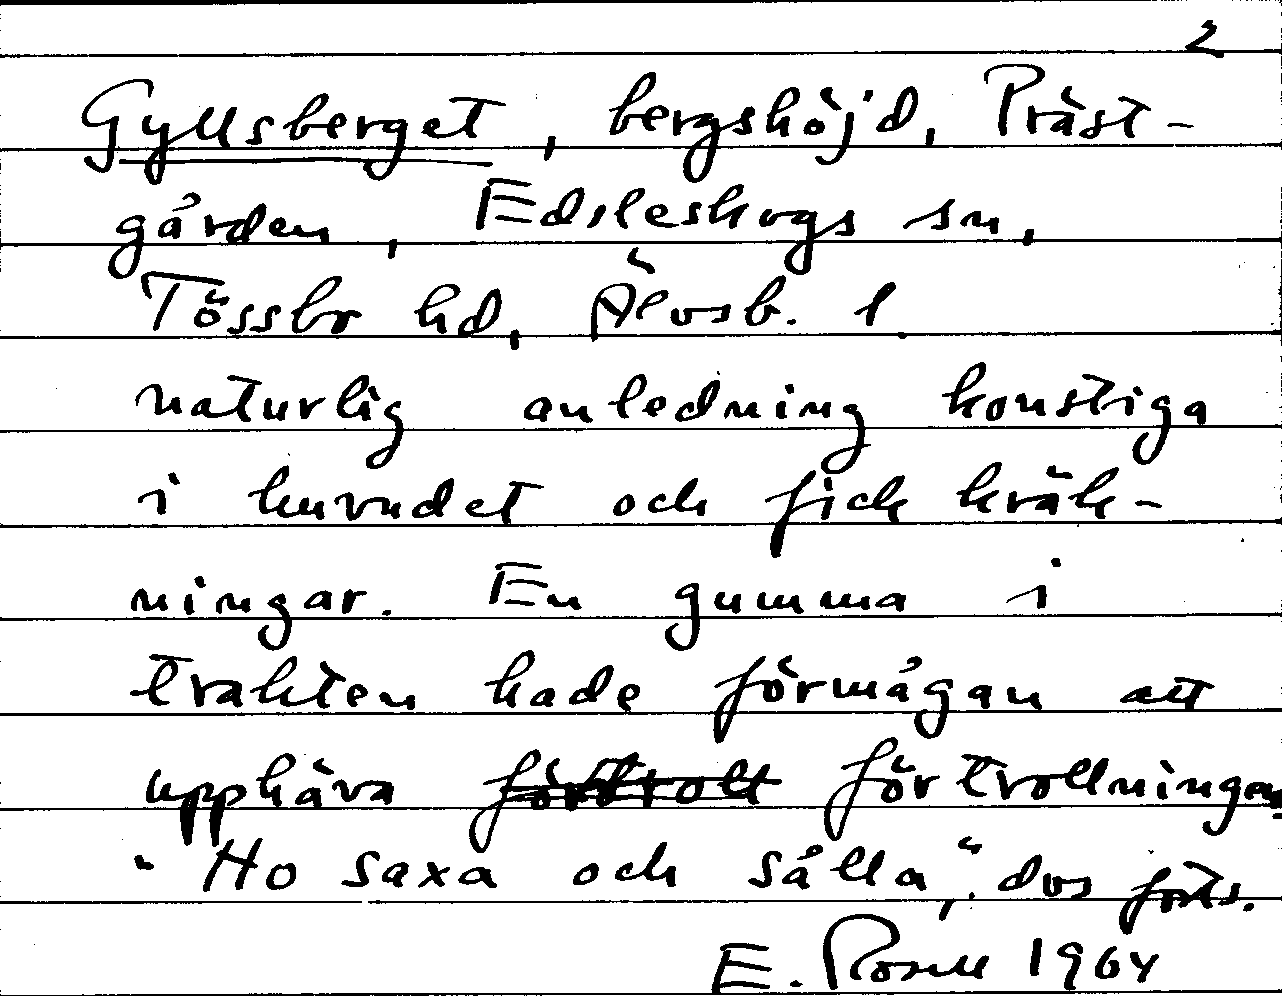 2
Gyllsberget, bergshöjd, Präst-
gården, Edsleskogs sn,
Tössbo hd, Älvsb. l.
naturlig anledning konstiga
i huvudet och fick kräk-
ningar. En gumma i
trakten hade förmågan att
upphäva förtroll förtrollningen.
"Ho saxa och sålla", dvs forts.
E. Rosell 1964